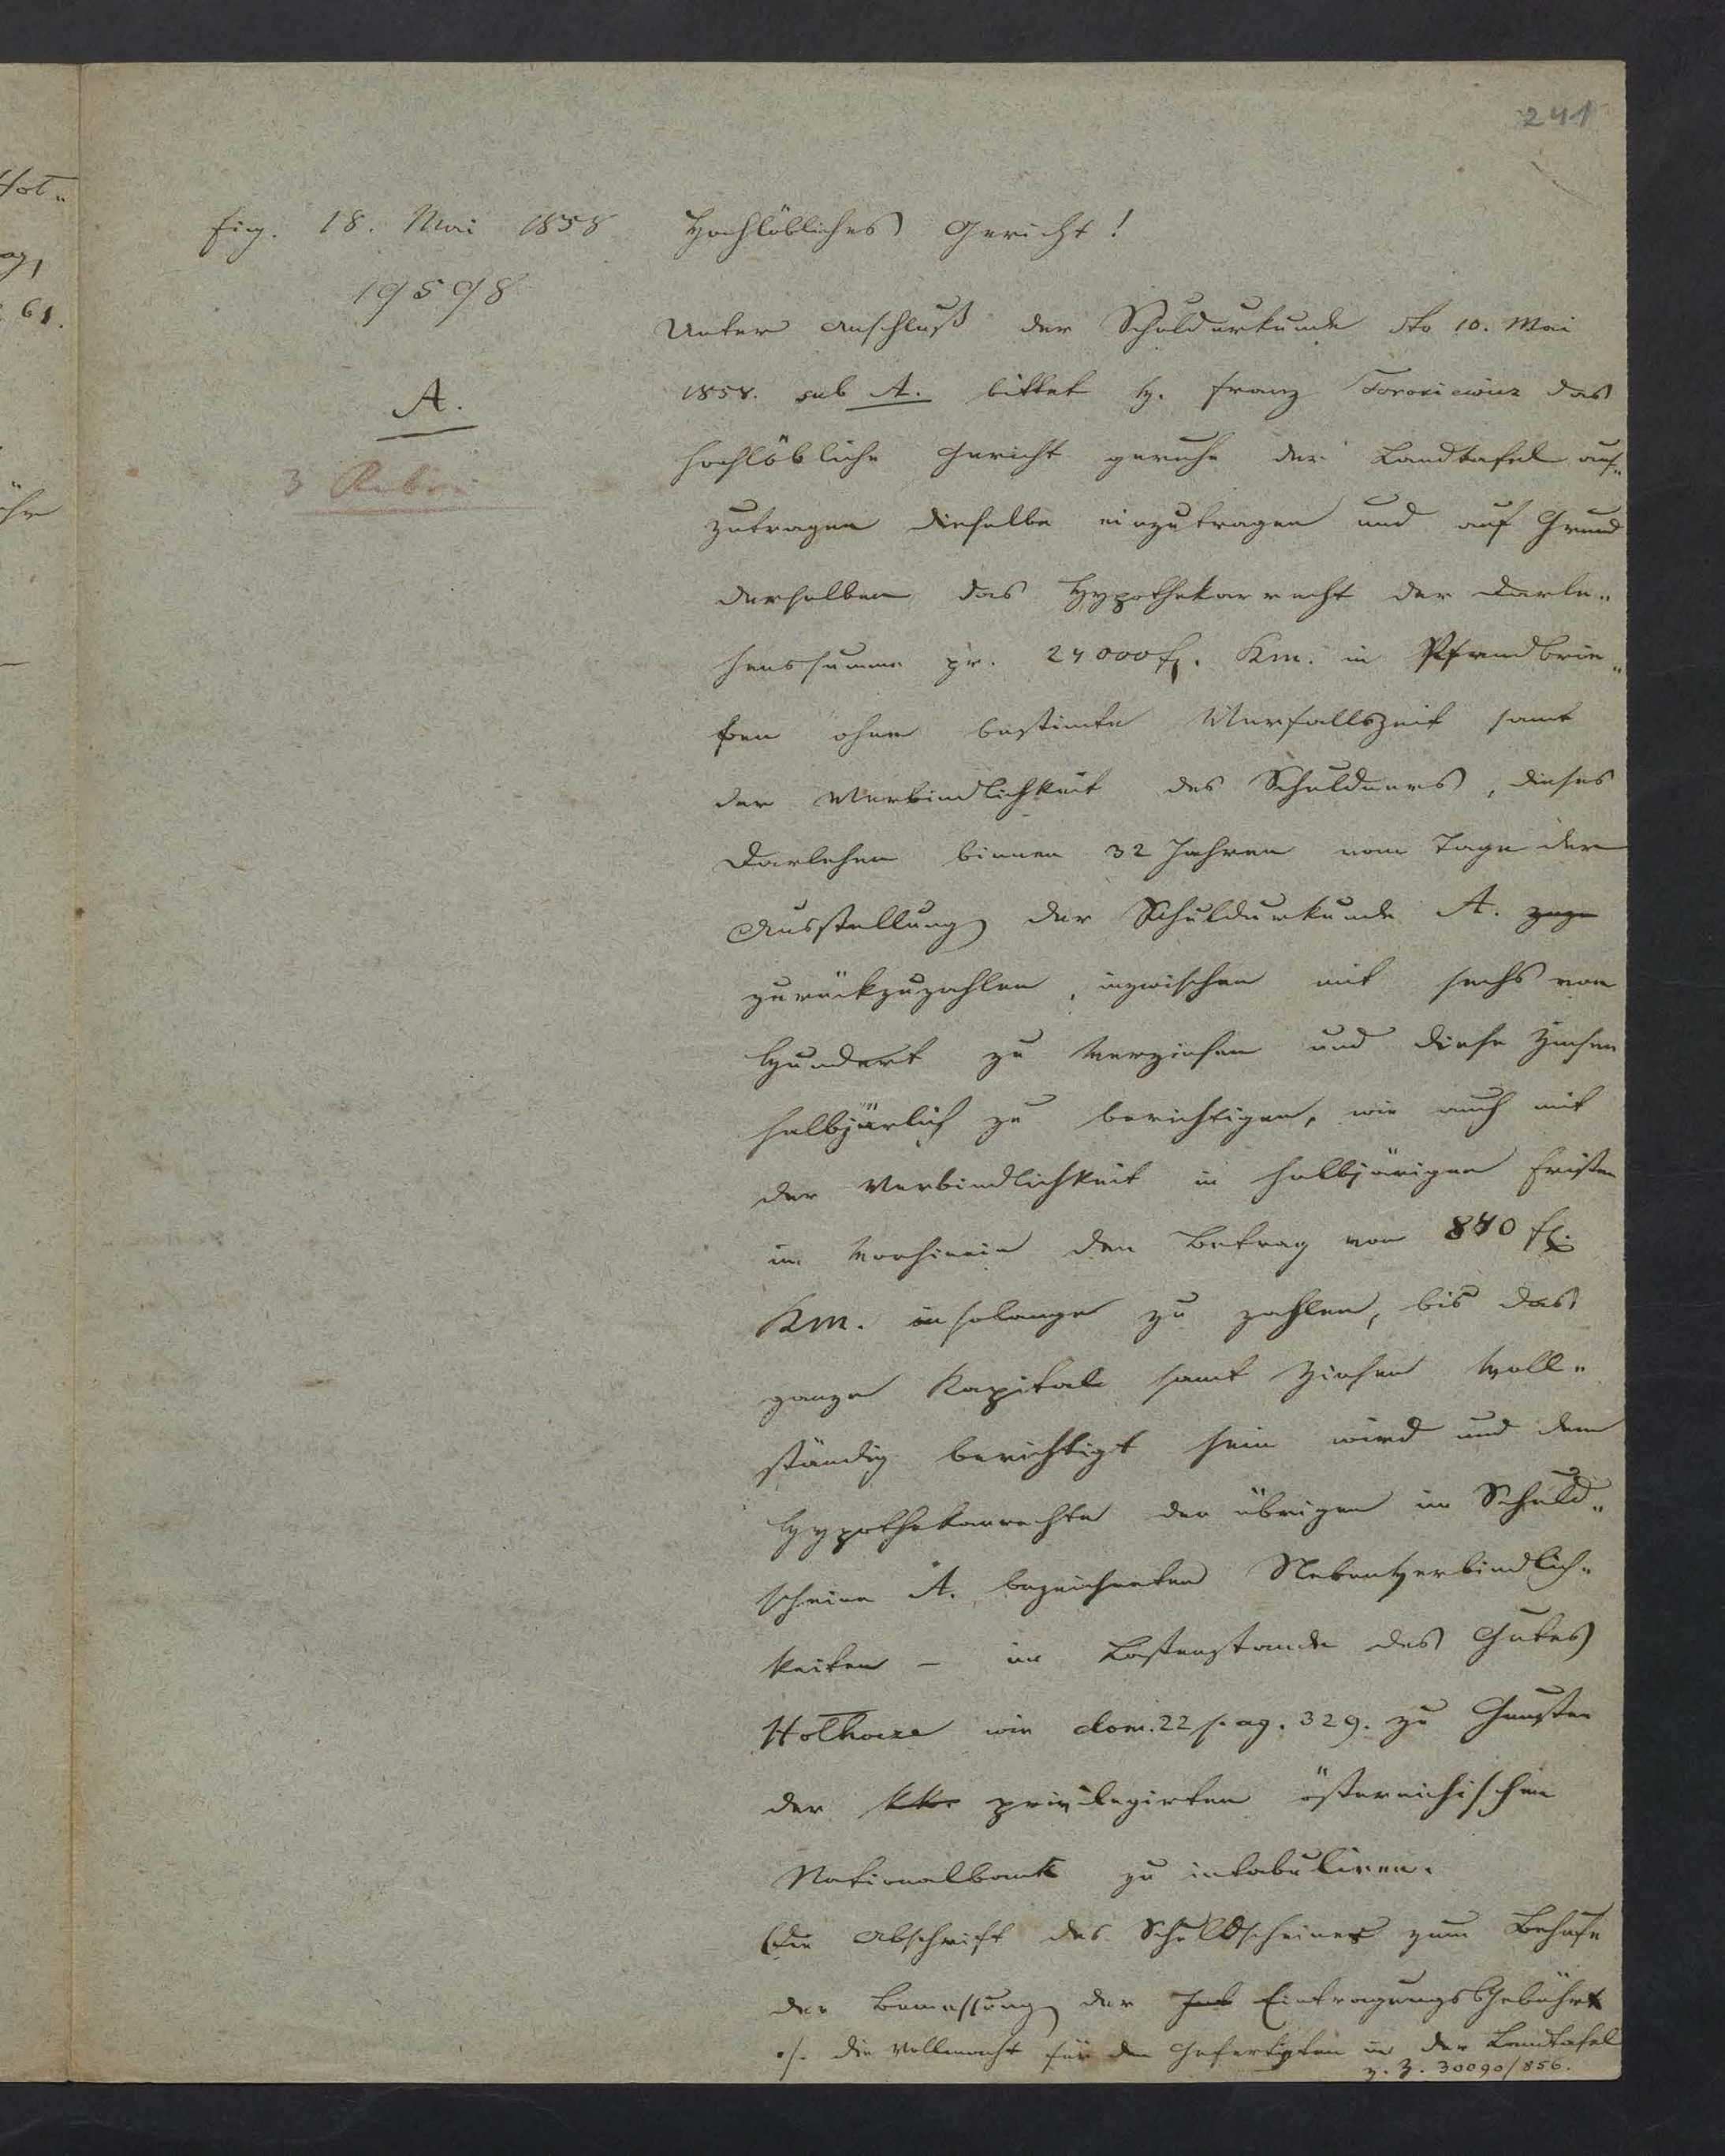 241
Eing. 18. Mai 1858
19598
A.
3 Rubri
Hochlöbliches Gericht!
Unter Anschluß der Schuldurkunde dto 10. Mai
1858. sub A. bittet H. Franz Torosiewicz das
hochlöbliche Gericht geruhe der Landtafel auf„
zutragen dieselbe einzutragen und auf Grund
derselben das Hypothekarrecht der Darle„
henssumme pr. 24000 f. Km. in Pfandbrie„
fen ohne bestimte Verfallszeit samt
der Verbindlichkeit des Schuldners, dieses
Darlehen binnen 32 Jahren vom Tage der
Ausstellung der Schuldurkunde A.
zurückzuzahlen, inzwischen mit sechs von
Hundert zu verzinsen und diese Zinsen
halbjärlich zu berichtigen, wie auch mit
der Verbindlichkeit in halbjärigen Fristen
im Vorhinein den Betrag von 840 fl.
Km. insolange zu zahlen, bis das
ganze Kapital samt Zinsen voll„
ständig berichtigt sein wird und dem
Hypothekarrechte der übrigen im Schuld„
scheine A. bezeichneten Nebenverbindlich„
keiten – im Lastenstande des Gutes
Hołhocze wie dom. 22 pag. 329. zu Gunsten
der kk. privilegirten österreichischen
Nationalbank zu intabuliren.
Die Abschrift des Schuldscheines zum Behufe
der Bemessung der Eintragungs Gebühr
./. die Vollmacht für den Gefertigten in der Landtafel
z. Z. 30090/856.
Hot„
61.